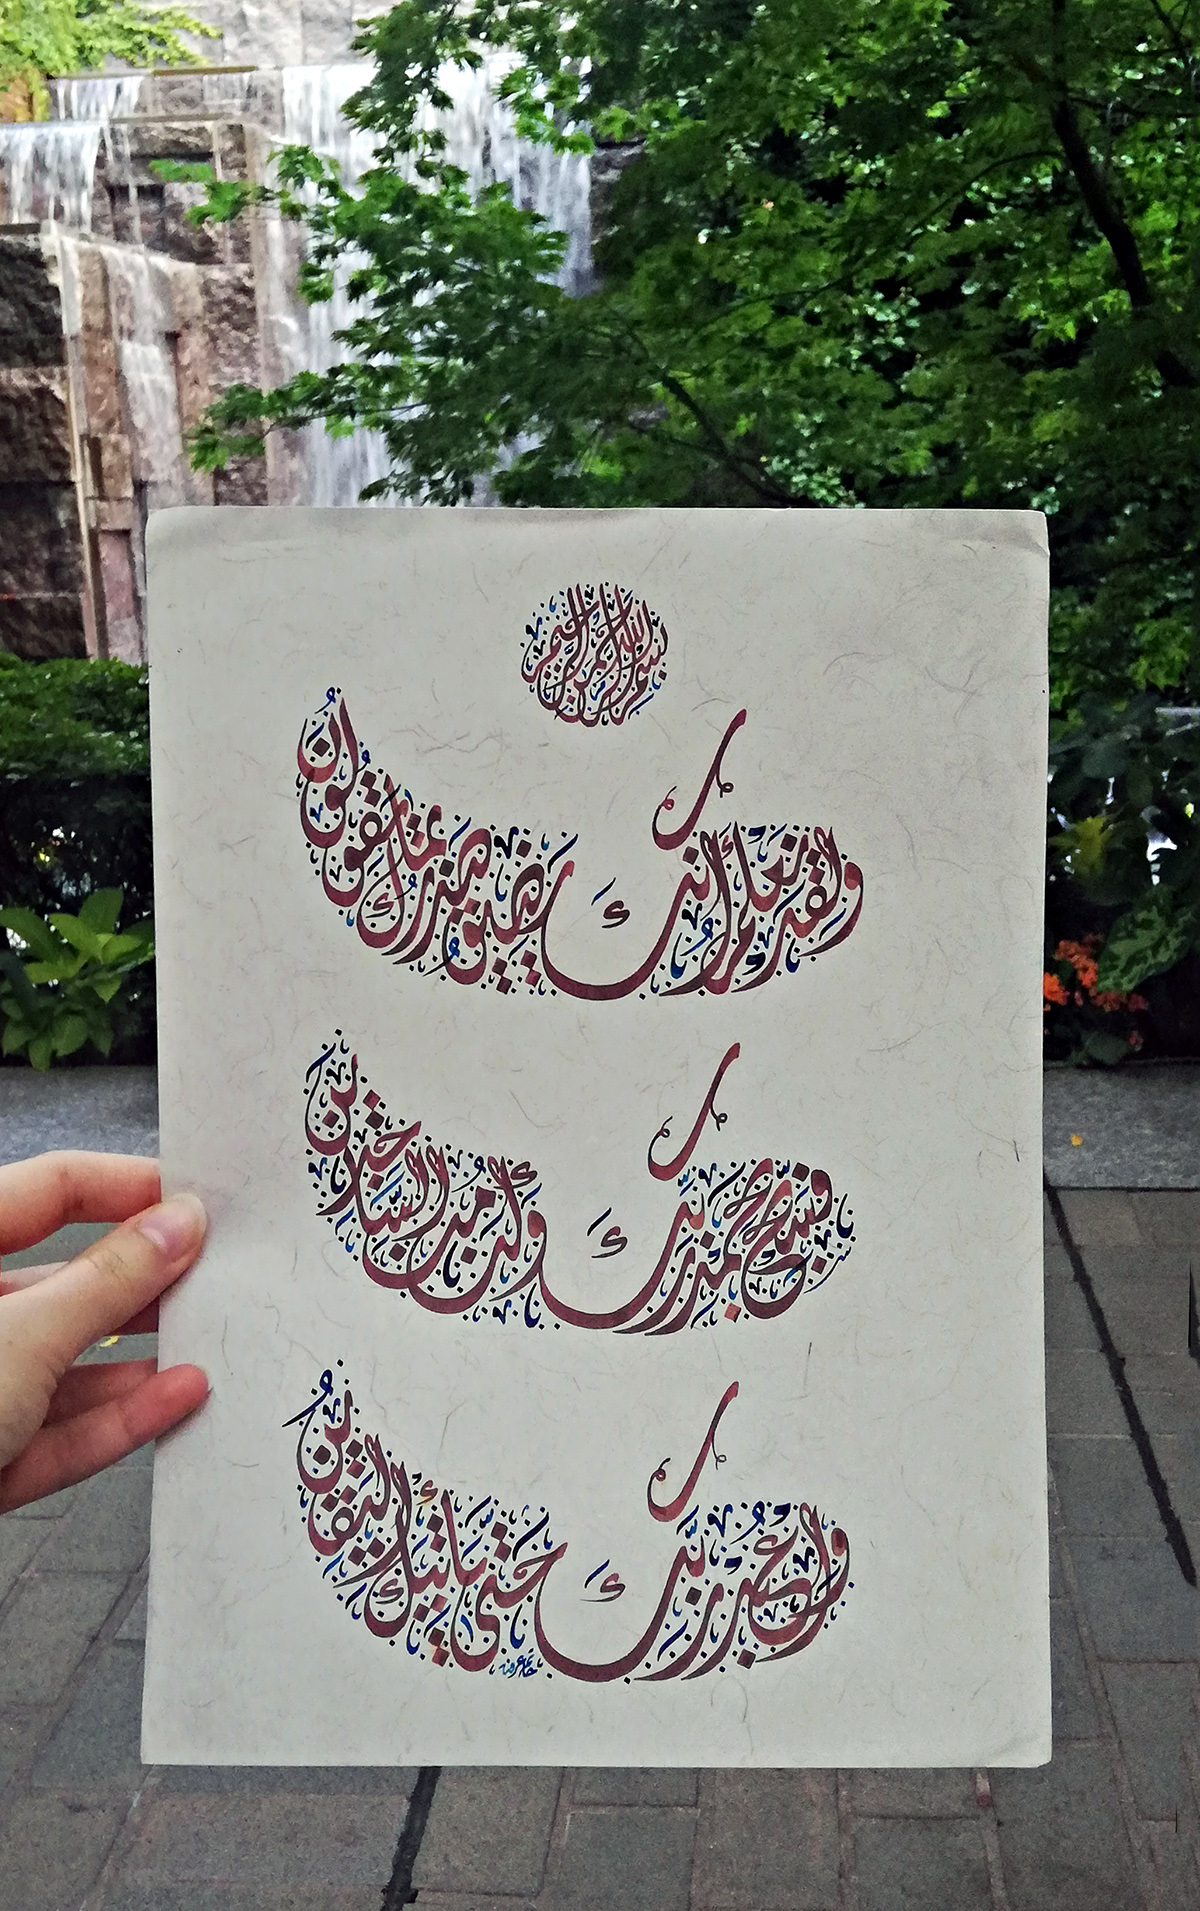 بسم الله الرحمن الرحيم
ولقد نعلم أنك يضيق صدرك بما يقولون
فسبح بحمد ربك وكن من الساجدين
واعبد ربك حتى يأتيك اليقين